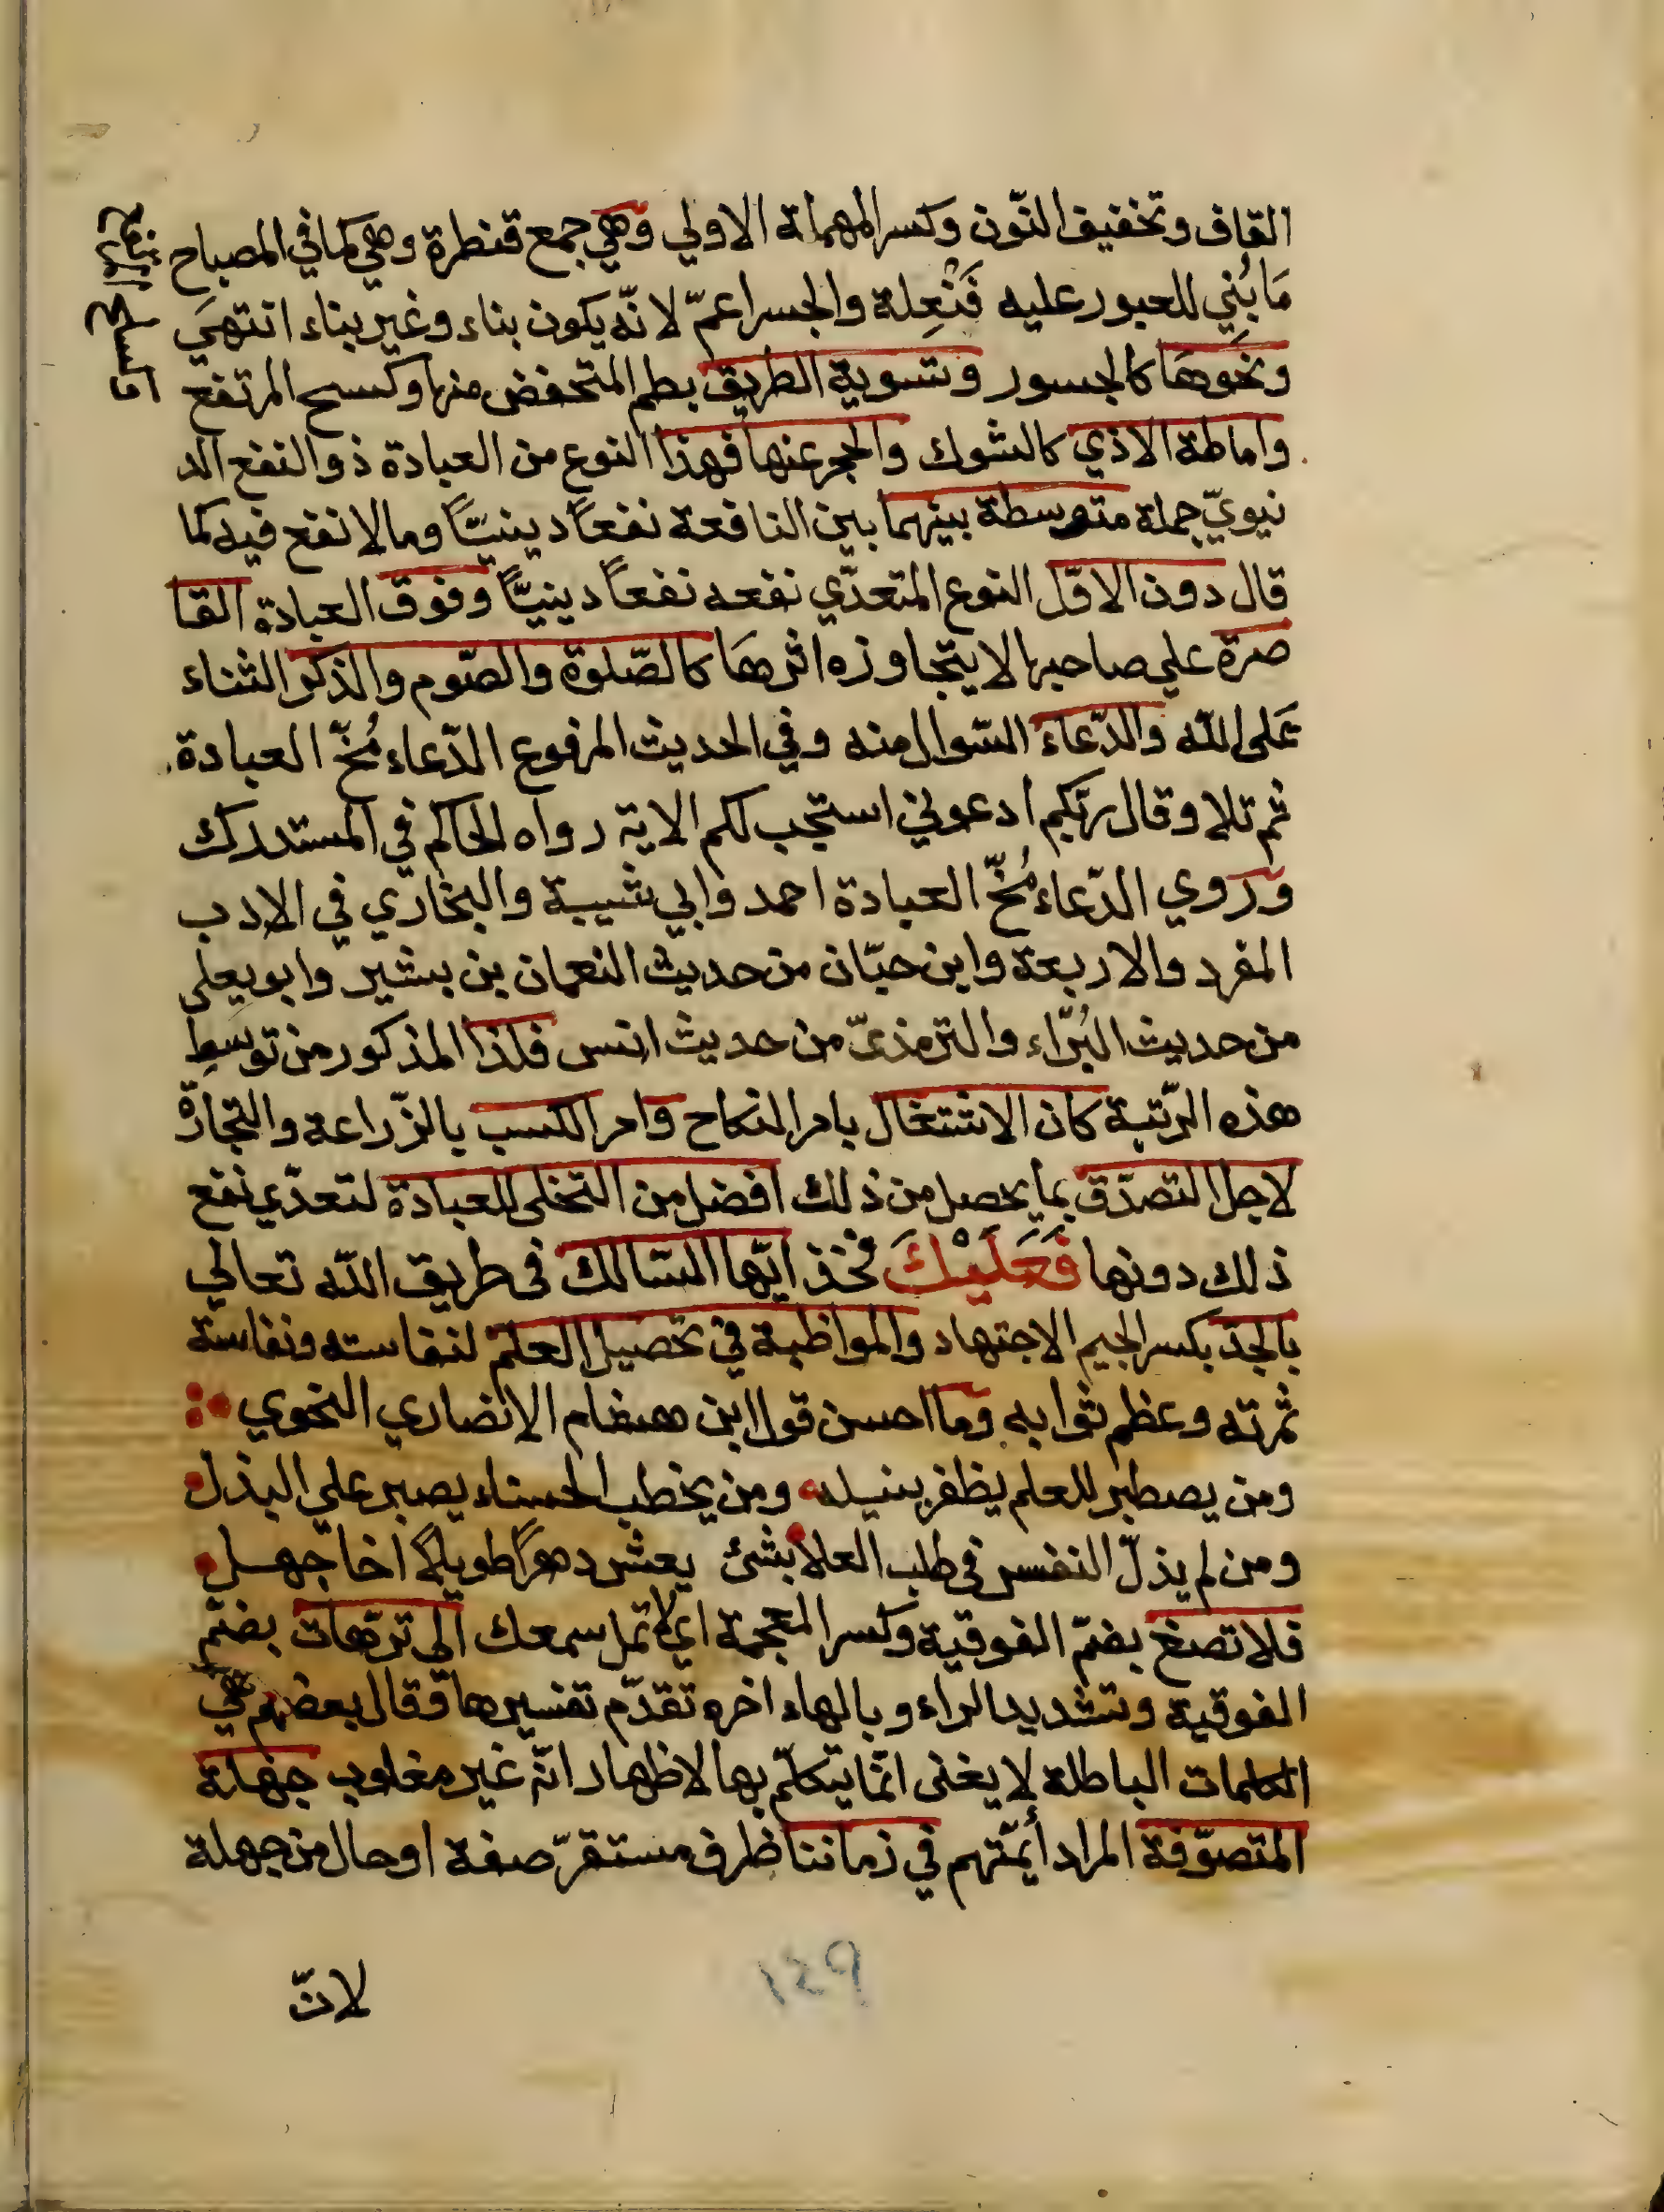 القاف وتخفيف النّون وكسر المهملة الاولي وهي جمع قنطرة وهي كما في المصباح
مَا بُنِي للعبور عليه فَنْعِلة والجسر اعمّ لانّه يكون بناء وغير بناء انتهيَ
ونحوهَا كالجسور وتسوية الطريق بطم المتخفض منها وكسح المرتفع
واماطة الاذي كالشوك والحجر عنها فهذا النوع من العبادة ذو النفع الد
نيويّ جملة متوسطة بينهما بين النافعة نفعاً دينيّاً وما لا نفع فيه كما
قال دون الاوّل النوع المتعدّي نفعه نفعاً دينيّاً وفوق العبادة القا
صرة علي صاحبها لا يتجاوزه اثرهَا كالصّلوة والصّوم والذكر الثناء
عَلى اللّه والدّعاء السّوال منه وفي الحديث المرفوع الدّعاء مُخّ العبادة
ثم تلا وقال ربّكم ادعوني استجب لكم الاية رواه الحاكم في المستدرك
وروي الدّعاء مُخّ العبادة احمد وابي شيبة والبخاري في الادب
المفرد والاربعة وابن حبّان من حديث النعمان بن بشير وابو يعلى
من حديث البُرّاء والترمذىّ من حديث انس فلذا المذكور من توسط
هذه الرّتبة كان الاشتغال بامر النكاح وامر الكسب بالزّراعة والتجارة
لاجل التصدّق بما يحصل من ذلك افضل من التخلى للعبادة لتعدّي نفع
ذلك دونها فَعَلَيْكَ فخذ ايّها السّالك فى طريق اللّه تعالي
بالجدّ بكسر الجيم الاجتهاد والمواظبة في تحصيل العلم لنفاسته ونفاسة
ثمرته وعظم ثوابه وما احسن قول ابن هشام الانصاري النحوي
ومن يصطبر للعلم يظفر بنيله ومن يخطب الحسناء يصبر علي البذل
ومن لم يذلّ النفس فى طلب العلا بشئ يعش دهراً طويلاً اخا جهل
فلا تصغ بضمّ الفوقية وكسر المعجمة اي لا تمل سمعك الي ترّهات بضمّ
الفوقية وتشديد الراء وبالهاء اخره تقدّم تفسيرها فقال بعضهم هي
الكلمات الباطلة لا يغنى انّما يتكلّم بها لاظهار انّه غير مغلوب جهلة
المتصوّفة المراد أيمّتهم في زماننا ظرف مستقرّ صفة او حال من جهلة
لانّ
١٤٩